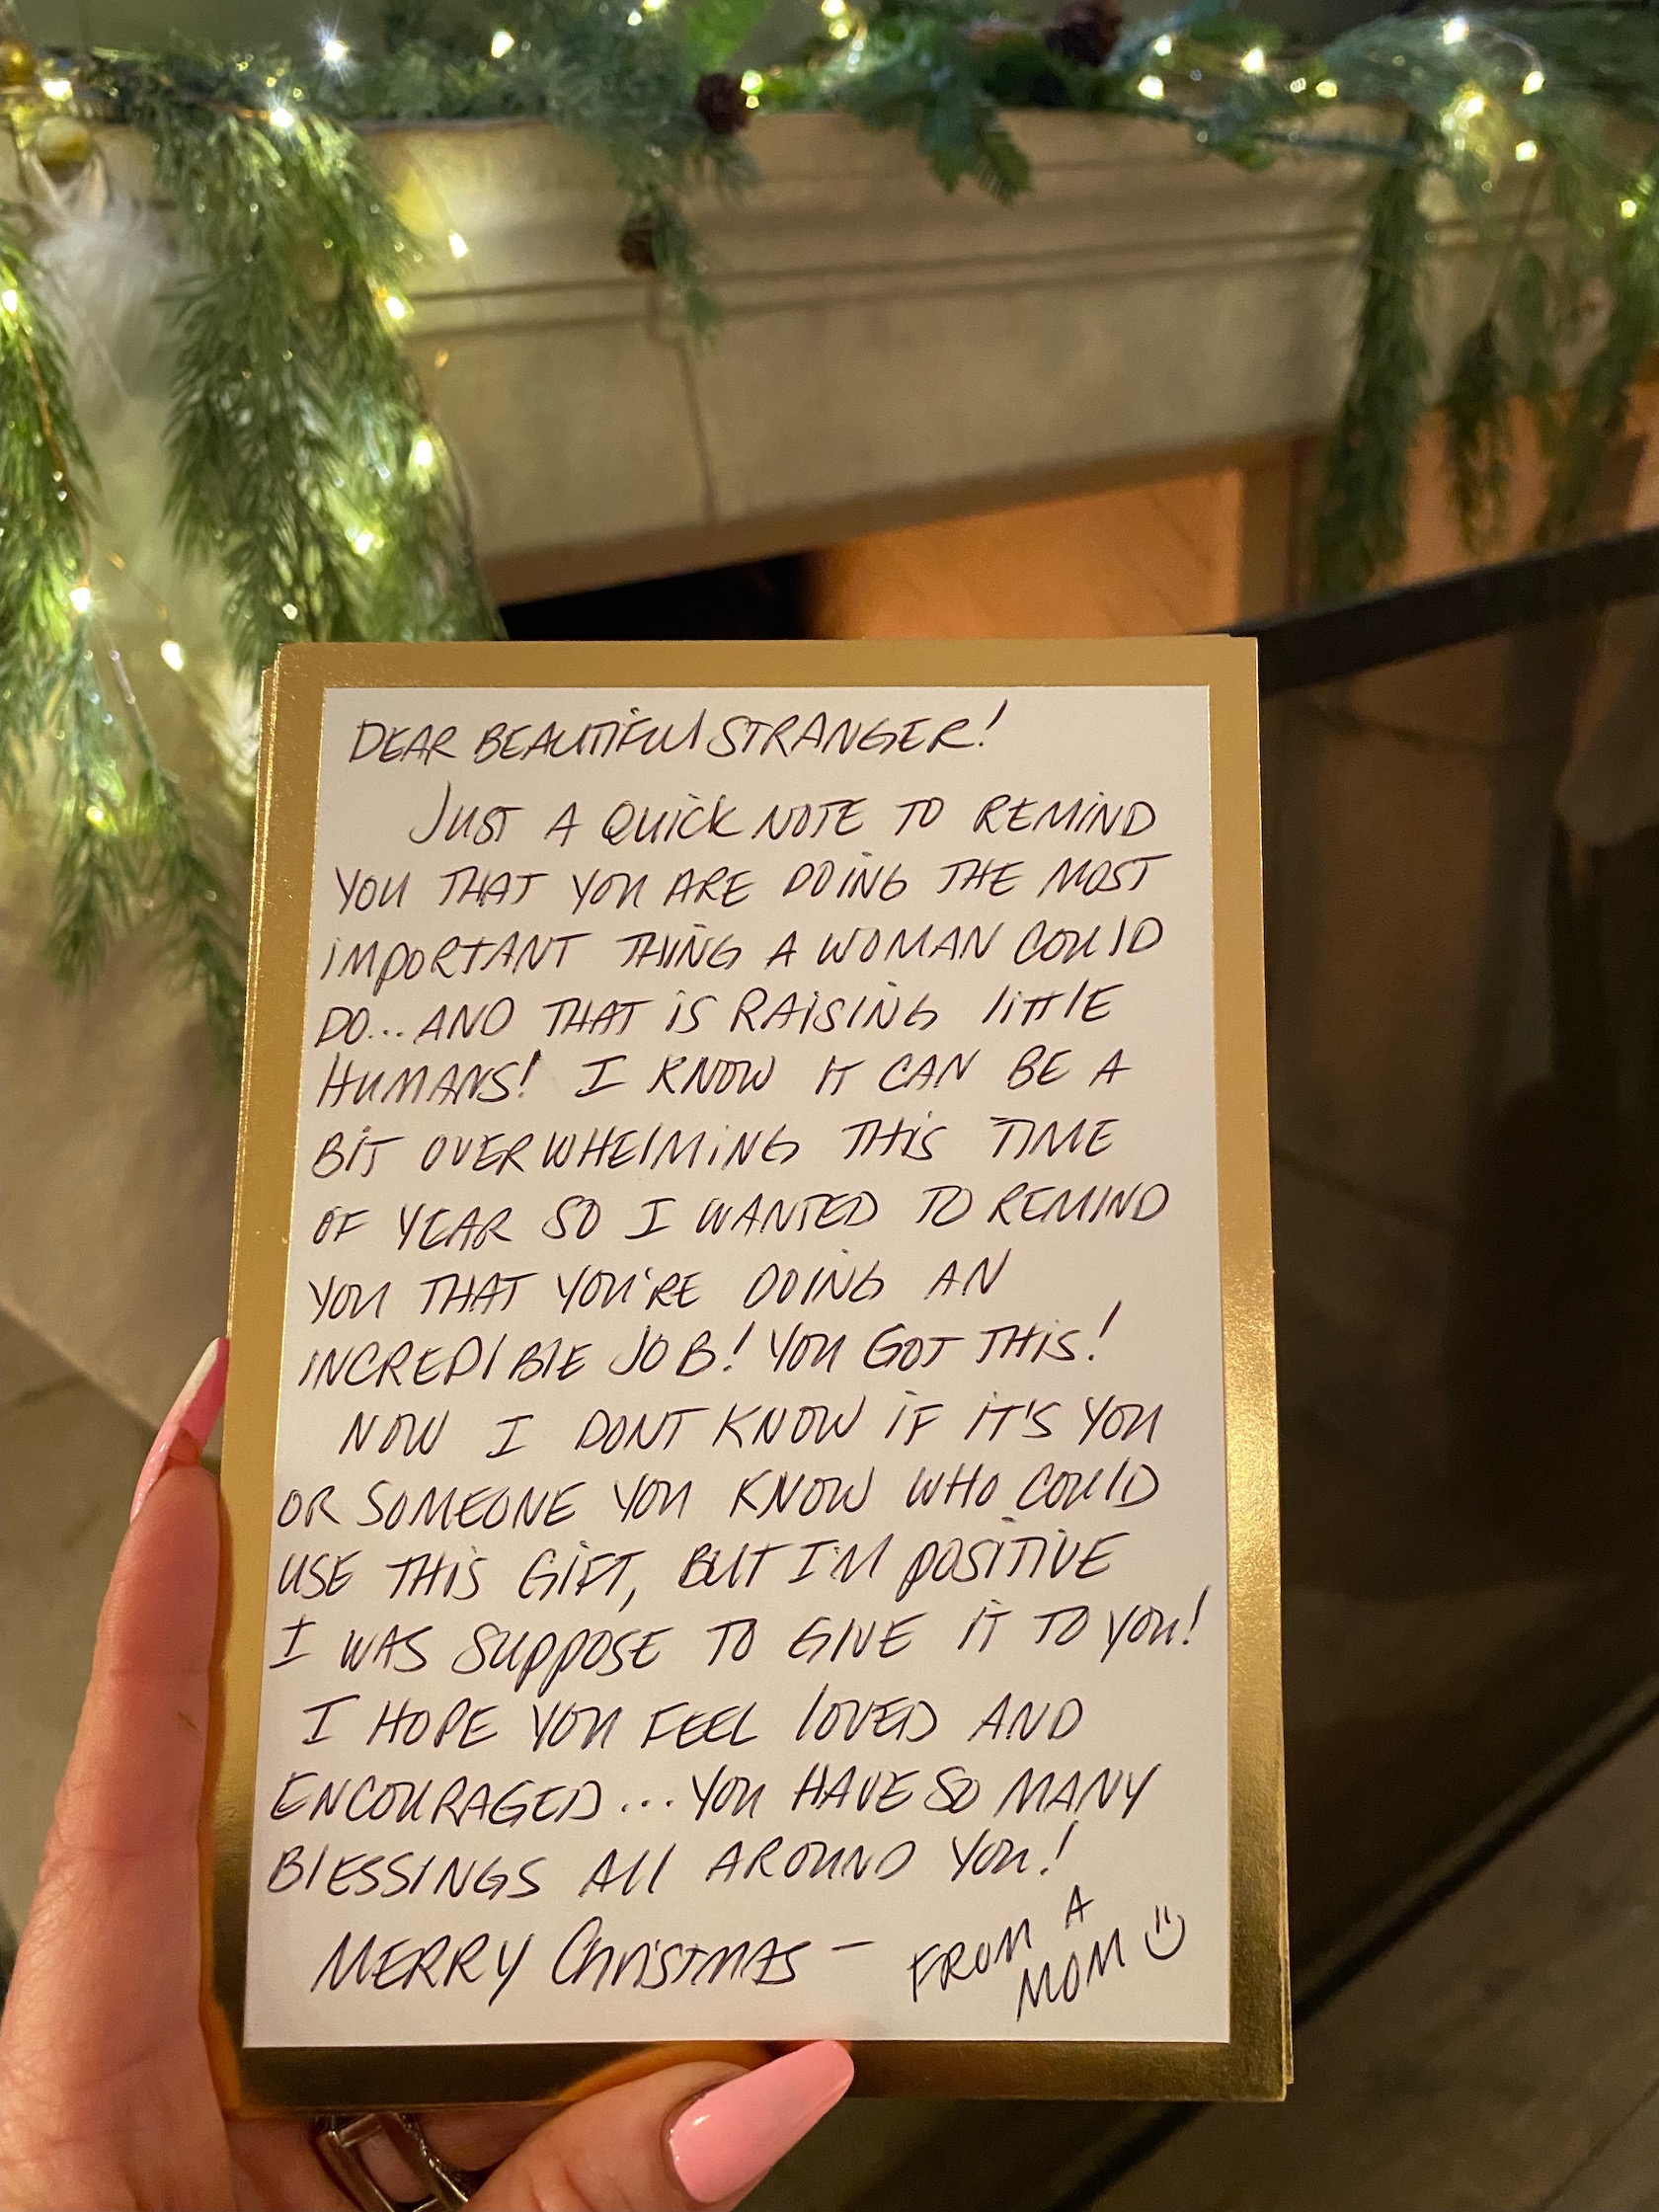 DEAR BEAUTIFUL STRANGER!
JUST A QUICK NOTE TO REMIND
YOU THAT YOU ARE DOING THE MOST
IMPORTANT THING A WOMAN COULD
DO... AND THAT IS RAISING LITTLE
HUMANS! I KNOW IT CAN BE A
BIT OVERWHELMING THIS TIME
OF YEAR SO I WANTED TO REMIND
YOU THAT YOU'RE DOING AN
INCREDIBLE JOB! YOU GOT THIS!
NOW I DONT KNOW IF IT'S YOU
OR SOMEONE YOU KNOW WHO COULD
USE THIS GIFT, BUT I'M POSITIVE
I WAS SUPPOSE TO GIVE IT TO YOU!
I HOPE YOU FEEL LOVED AND
ENCOURAGED... YOU HAVE SO MANY
BLESSINGS ALL AROUND YOU!
MERRY CHRISTMAS - FROM A
MOM